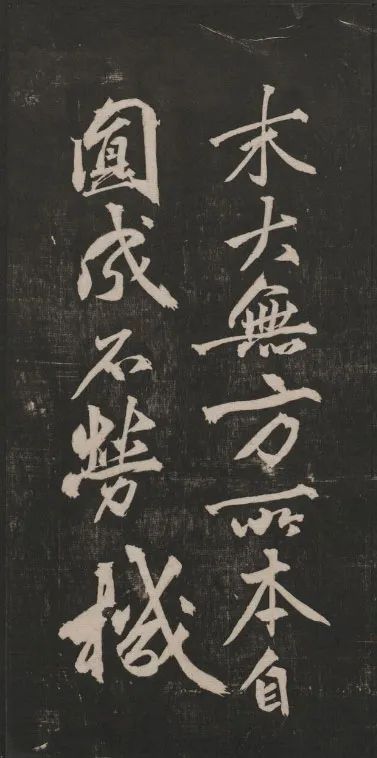 末大無方所本自
圓成不勞機